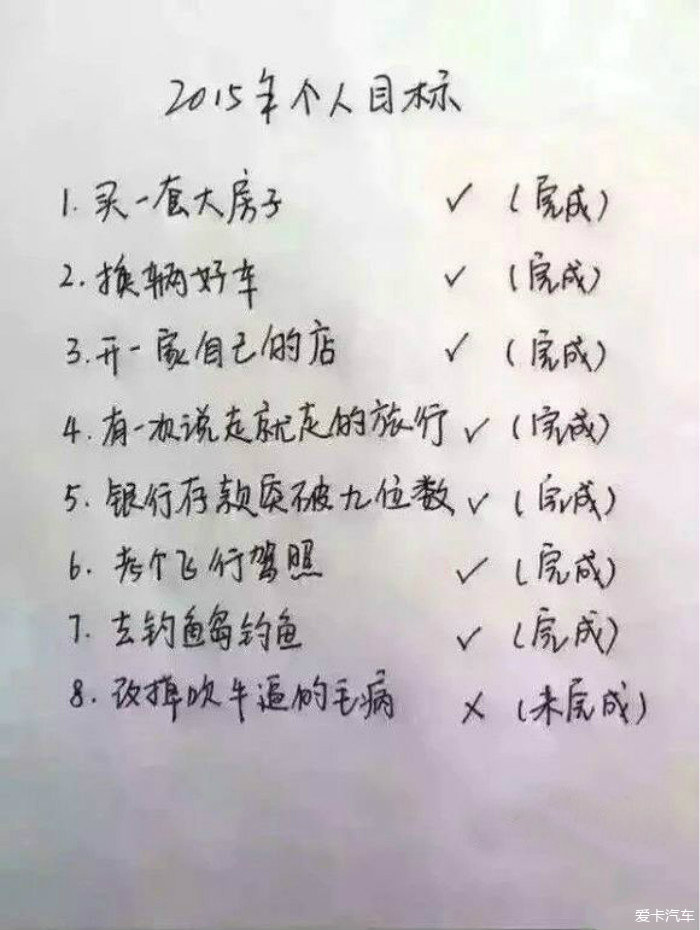 2015年个人目标
1. 买一套大房子 ✓ (完成)
2. 换辆好车 ✓ (完成)
3. 开一家自己的店 ✓ (完成)
4. 有一次说走就走的旅行 ✓ (完成)
5. 银行存款突破九位数 ✓ (完成)
6. 考个飞行驾照 ✓ (完成)
7. 去钓鱼岛钓鱼 ✓ (完成)
8. 改掉吹牛逼的毛病 × (未完成)
爱卡汽车